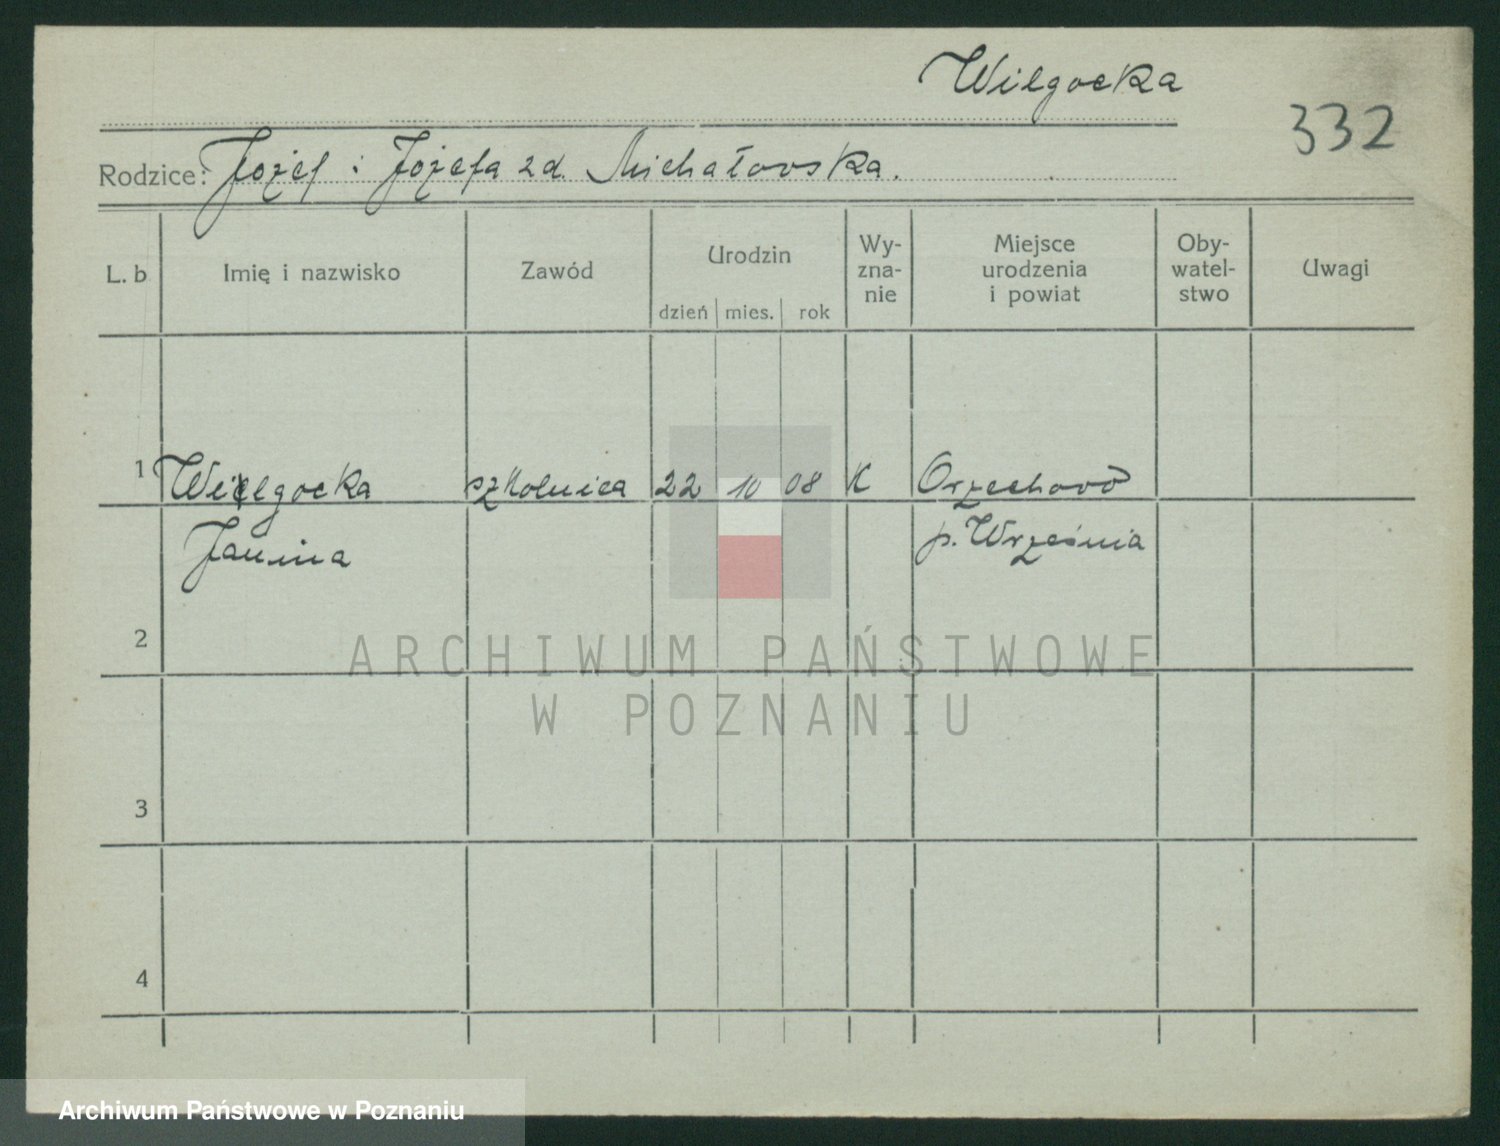 Wilgocka
332
Rodzice: Józef i Józefa zd. Michałowska.
L. b
Imię i nazwisko
Zawód
Urodzin
dzień mies. rok
Wy-
zna-
nie
Miejsce
urodzenia
i powiat
Oby-
watel-
stwo
Uwagi
1 Wilgocka szkolnica 22 10 08 K Orzechowo
Janina p. Września
2
3
4
ARCHIWUM PAŃSTWOWE
W POZNANIU
Archiwum Państwowe w Poznaniu